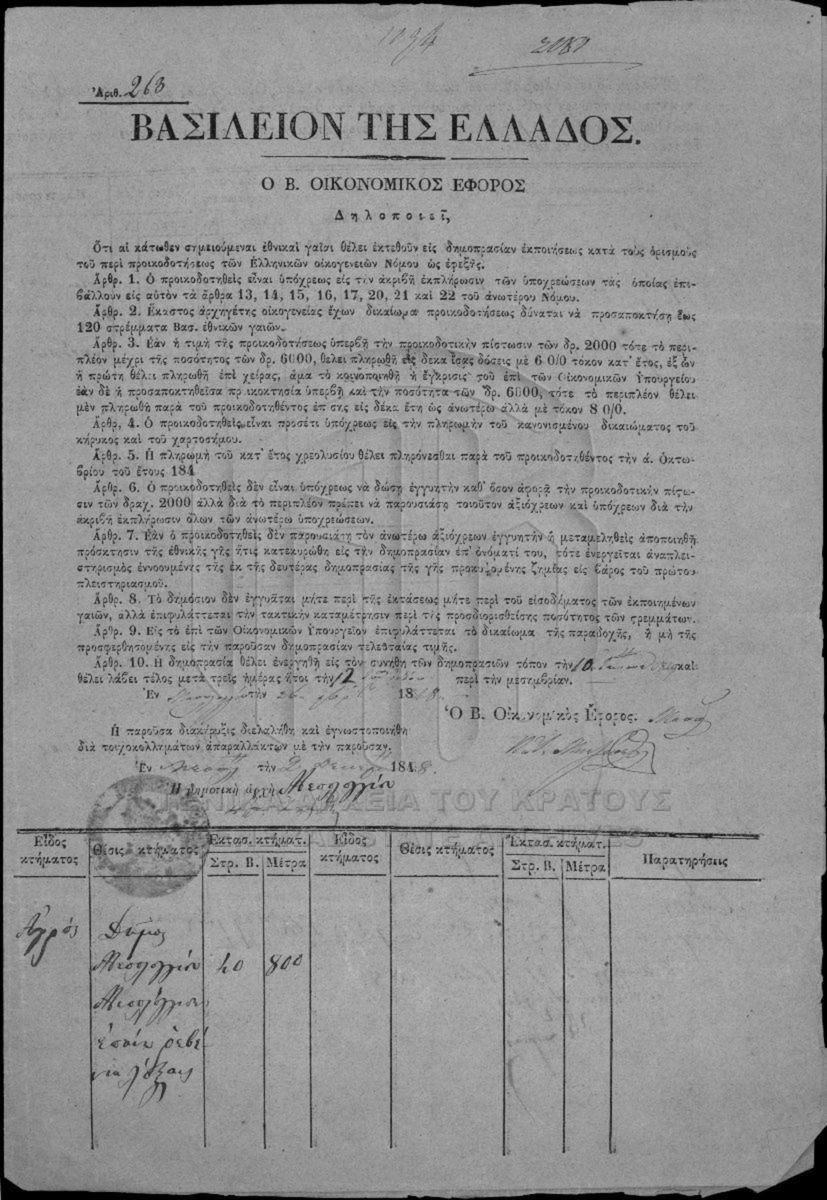 2080
Ἀριθ. 263
ΒΑΣΙΛΕΙΟΝ ΤΗΣ ΕΛΛΑΔΟΣ.
Ο Β. ΟΙΚΟΝΟΜΙΚΟΣ ΕΦΟΡΟΣ
Δηλοποιεῖ,
Ὅτι αἱ κάτωθεν σημειούμεναι ἐθνικαὶ γαῖαι θέλει ἐκτεθοῦν εἰς δημοπρασίαν ἐκποιήσεως κατὰ τοὺς ὁρισμοὺς
τοῦ περὶ προικοδοτήσεως τῶν Ἑλληνικῶν οἰκογενειῶν Νόμου ὡς ἐφεξῆς.
Ἄρθρ. 1. Ὁ προικοδοτηθεὶς εἶναι ὑπόχρεως εἰς τὴν ἀκριβῆ ἐκπλήρωσιν τῶν ὑποχρεώσεων τὰς ὁποίας ἐπι-
βάλλουν εἰς αὐτὸν τὰ ἄρθρα 13, 14, 15, 16, 17, 20, 21 καὶ 22 τοῦ ἀνωτέρου Νόμου.
Ἄρθρ. 2. Ἕκαστος ἀρχηγέτης οἰκογενείας ἔχων δικαίωμα προικοδοτήσεως δύναται νὰ προσαποκτήσῃ ἕως
120 στρέμματα Βασ. ἐθνικῶν γαιῶν.
Ἄρθρ. 3. Ἐὰν ἡ τιμὴ τῆς προικοδοτήσεως ὑπερβῇ τὴν προικοδοτικὴν πίστωσιν τῶν δρ. 2000 τότε τὸ περι-
πλέον μέχρι τῆς ποσότητος τῶν δρ. 6000, θέλει πληρωθῆ εἰς δέκα ἴσας δόσεις μὲ 6 0/0 τόκον κατ' ἔτος, ἐξ ὧν
ἡ πρώτη θέλει πληρωθῆ ἐπὶ χεῖρας, ἅμα τὸ κοινοποιηθῇ ἡ ἔγκρισις τοῦ ἐπὶ τῶν Οἰκονομικῶν Ὑπουργείου
ἐὰν δὲ ἡ προσαποκτηθεῖσα πρ ικοκτησία ὑπερβῇ καὶ τὴν ποσότητα τῶν δρ. 6000, τότε τὸ περιπλέον θέλει
μὲν πληρωθῆ παρὰ τοῦ προικοδοτηθέντος ἐπ σης εἰς δέκα ἔτη ὡς ἀνωτέρω ἀλλὰ μὲ τόκον 8 0/0.
Ἄρθρ, 4. Ὁ προικοδοτηθεὶς εἶναι προσέτι ὑπόχρεως εἰς τὴν πληρωμὴν τοῦ κανονισμένου δικαιώματος τοῦ
κήρυκος καὶ τοῦ χαρτοσήμου.
Ἄρθρ. 5. Ἡ πληρωμὴ τοῦ κατ' ἔτος χρεολυσίου θέλει πληρόνεσθαι παρὰ τοῦ προικοδοτηθέντος τὴν ά. Ὀκτω-
βρίου τοῦ ἔτους 184
Ἄρθρ. 6. Ὁ προικοδοτηθεὶς δὲν εἶναι ὑπόχρεως νὰ δώσῃ ἐγγυητὴν καθ' ὅσον ἀφορᾷ τὴν προικοδοτικὴν πίστω-
σιν τῶν δραχ. 2000 ἀλλὰ διὰ τὸ περιπλέον πρέπει νὰ παρουσιάσῃ τοιοῦτον ἀξιόχρεων καὶ ὑπόχρεων διὰ τὴν
ἀκριβῆ ἐκπλήρωσιν ὅλων τῶν ἀνωτέρω ὑποχρεώσεων.
Ἄρθρ. 7. Ἐὰν ὁ προικοδοτηθεὶς δὲν παρουσιάσῃ τὸν ἀνωτέρω ἀξιόχρεων ἐγγυητὴν ἢ μεταμεληθεὶς ἀποποιηθῇ
πρόσκτησιν τῆς ἐθνικῆς γῆς ἥτις κατεκυρώθη εἰς τὴν δημοπρασίαν ἐπ' ὀνόματί του, τότε ἐνεργεῖται ἀναπλει-
στηρισμὸς ἐννοουμένης τῆς ἐκ τῆς δευτέρας δημοπρασίας τῆς γῆς προκυπτομένης ζημίας εἰς βάρος τοῦ πρώτου
πλειστηριασμοῦ.
Ἄρθρ. 8. Τὸ δημόσιον δὲν ἐγγυᾶται μήτε περὶ τῆς ἐκτάσεως μήτε περὶ τοῦ εἰσοδήματος τῶν ἐκποιημένων
γαιῶν, ἀλλὰ ἐπιφυλάττεται τὴν τακτικὴν καταμέτρησιν περὶ τῆς προσδιορισθείσης ποσότητος τῶν στρεμμάτων.
Ἄρθρ. 9. Εἰς τὸ ἐπὶ τῶν Οἰκονομικῶν Ὑπουργεῖον ἐπιφυλάττεται τὸ δικαίωμα τῆς παραδοχῆς, ἢ μὴ τῆς
προσφερθησομένης εἰς τὴν παροῦσαν δημοπρασίαν τελευταίας τιμῆς.
Ἄρθρ. 10. Ἡ δημοπρασία θέλει ἐνεργηθῇ εἰς τὸν συνήθη τῶν δημοπρασιῶν τόπον τὴν 10 καὶ
θέλει λάβει τέλος μετὰ τρεῖς ἡμέρας ἤτοι τὴν 12 περὶ τὴν μεσημβρίαν.
Ἐν τὴν 1848.
Ὁ Β. Οἰκονομικὸς Ἔφορος.
Ἡ παροῦσα διακήρυξις διελαλήθη καὶ ἐγνωστοποιήθη
διὰ τοιχοκολλημάτων ἀπαραλλάκτων μὲ τὴν παροῦσαν.
Ἐν τὴν 2 1848.
Ἡ Δημοτικὴ ἀρχὴ Μεσολογγίου
ΓΕΝΙΚΑ ΑΡΧΕΙΑ ΤΟΥ ΚΡΑΤΟΥΣ
Εἶδος κτήματος Θέσις κτήματος Ἔκτασ. κτήματ. Στρ. Β. Μέτρα Εἶδος κτήματος Θέσις κτήματος Ἔκτασ. κτήματ. Στρ. Β. Μέτρα Παρατηρήσεις
Ἀγρός Δήμος
Μεσολογγίου 40 800
Μεσολόγγιον